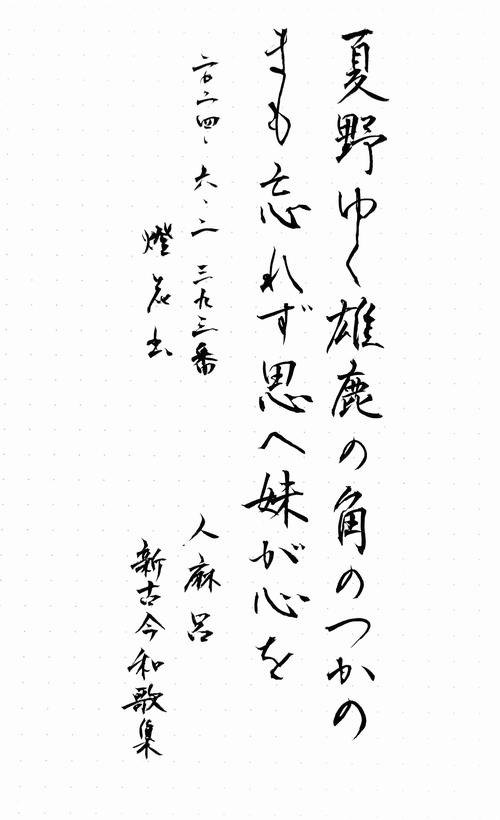 夏野ゆく雄鹿の角のつかの
まも忘れず思へ妹が心を
人麻呂
新古今和歌集
二〇二四、六、二 三九三番
燈花出